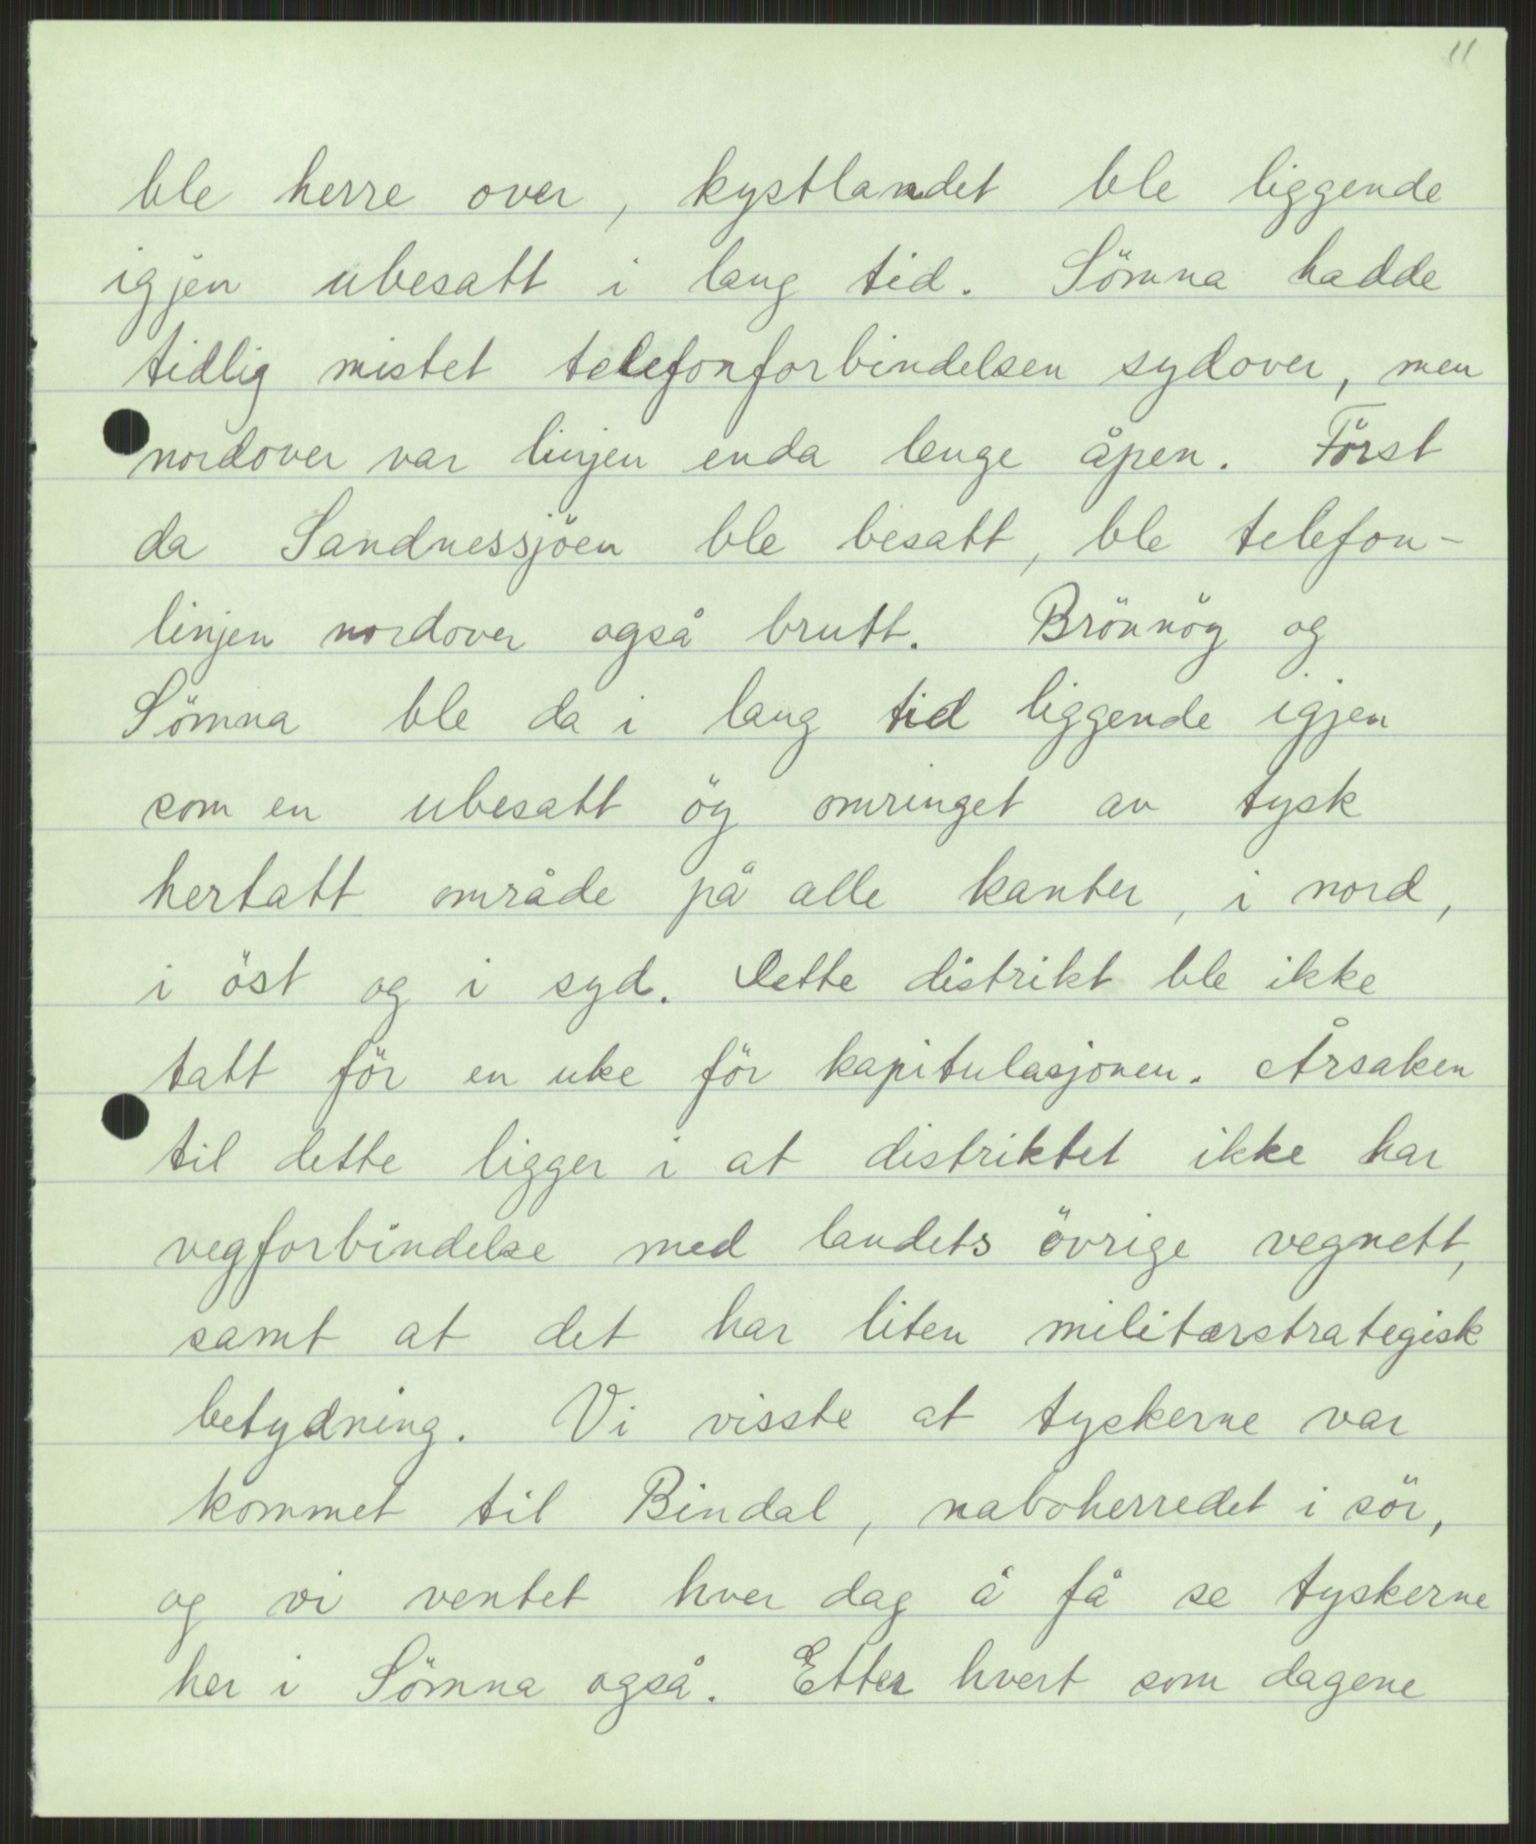 11
ble herre over, kystlandet ble liggende
igjen ubesatt i lang tid. Sömna hadde
tidlig mistet telefonforbindelsen sydover, men
nordover var linjen enda lenge åpen. Först
da Sandnessjöen ble besatt, ble telefon-
linjen nordover også brutt. Brönnöy og
Sömna ble da i lang tid liggende igjen
som en ubesatt öy omringet av tysk
hertatt område på alle kanter, i nord,
i öst og i syd. Dette distrikt ble ikke
tatt för en uke för kapitulasjonen. Årsaken
til dette ligger i at distriktet ikke har
vegforbindelse med landets övrige vegnett,
samt at det har liten militærstrategisk
betydning. Vi visste at tyskerne var
kommet til Bindal, naboherredet i sör,
og vi ventet hver dag å få se tyskerne
her i Sömna også. Etter hvert som dagene